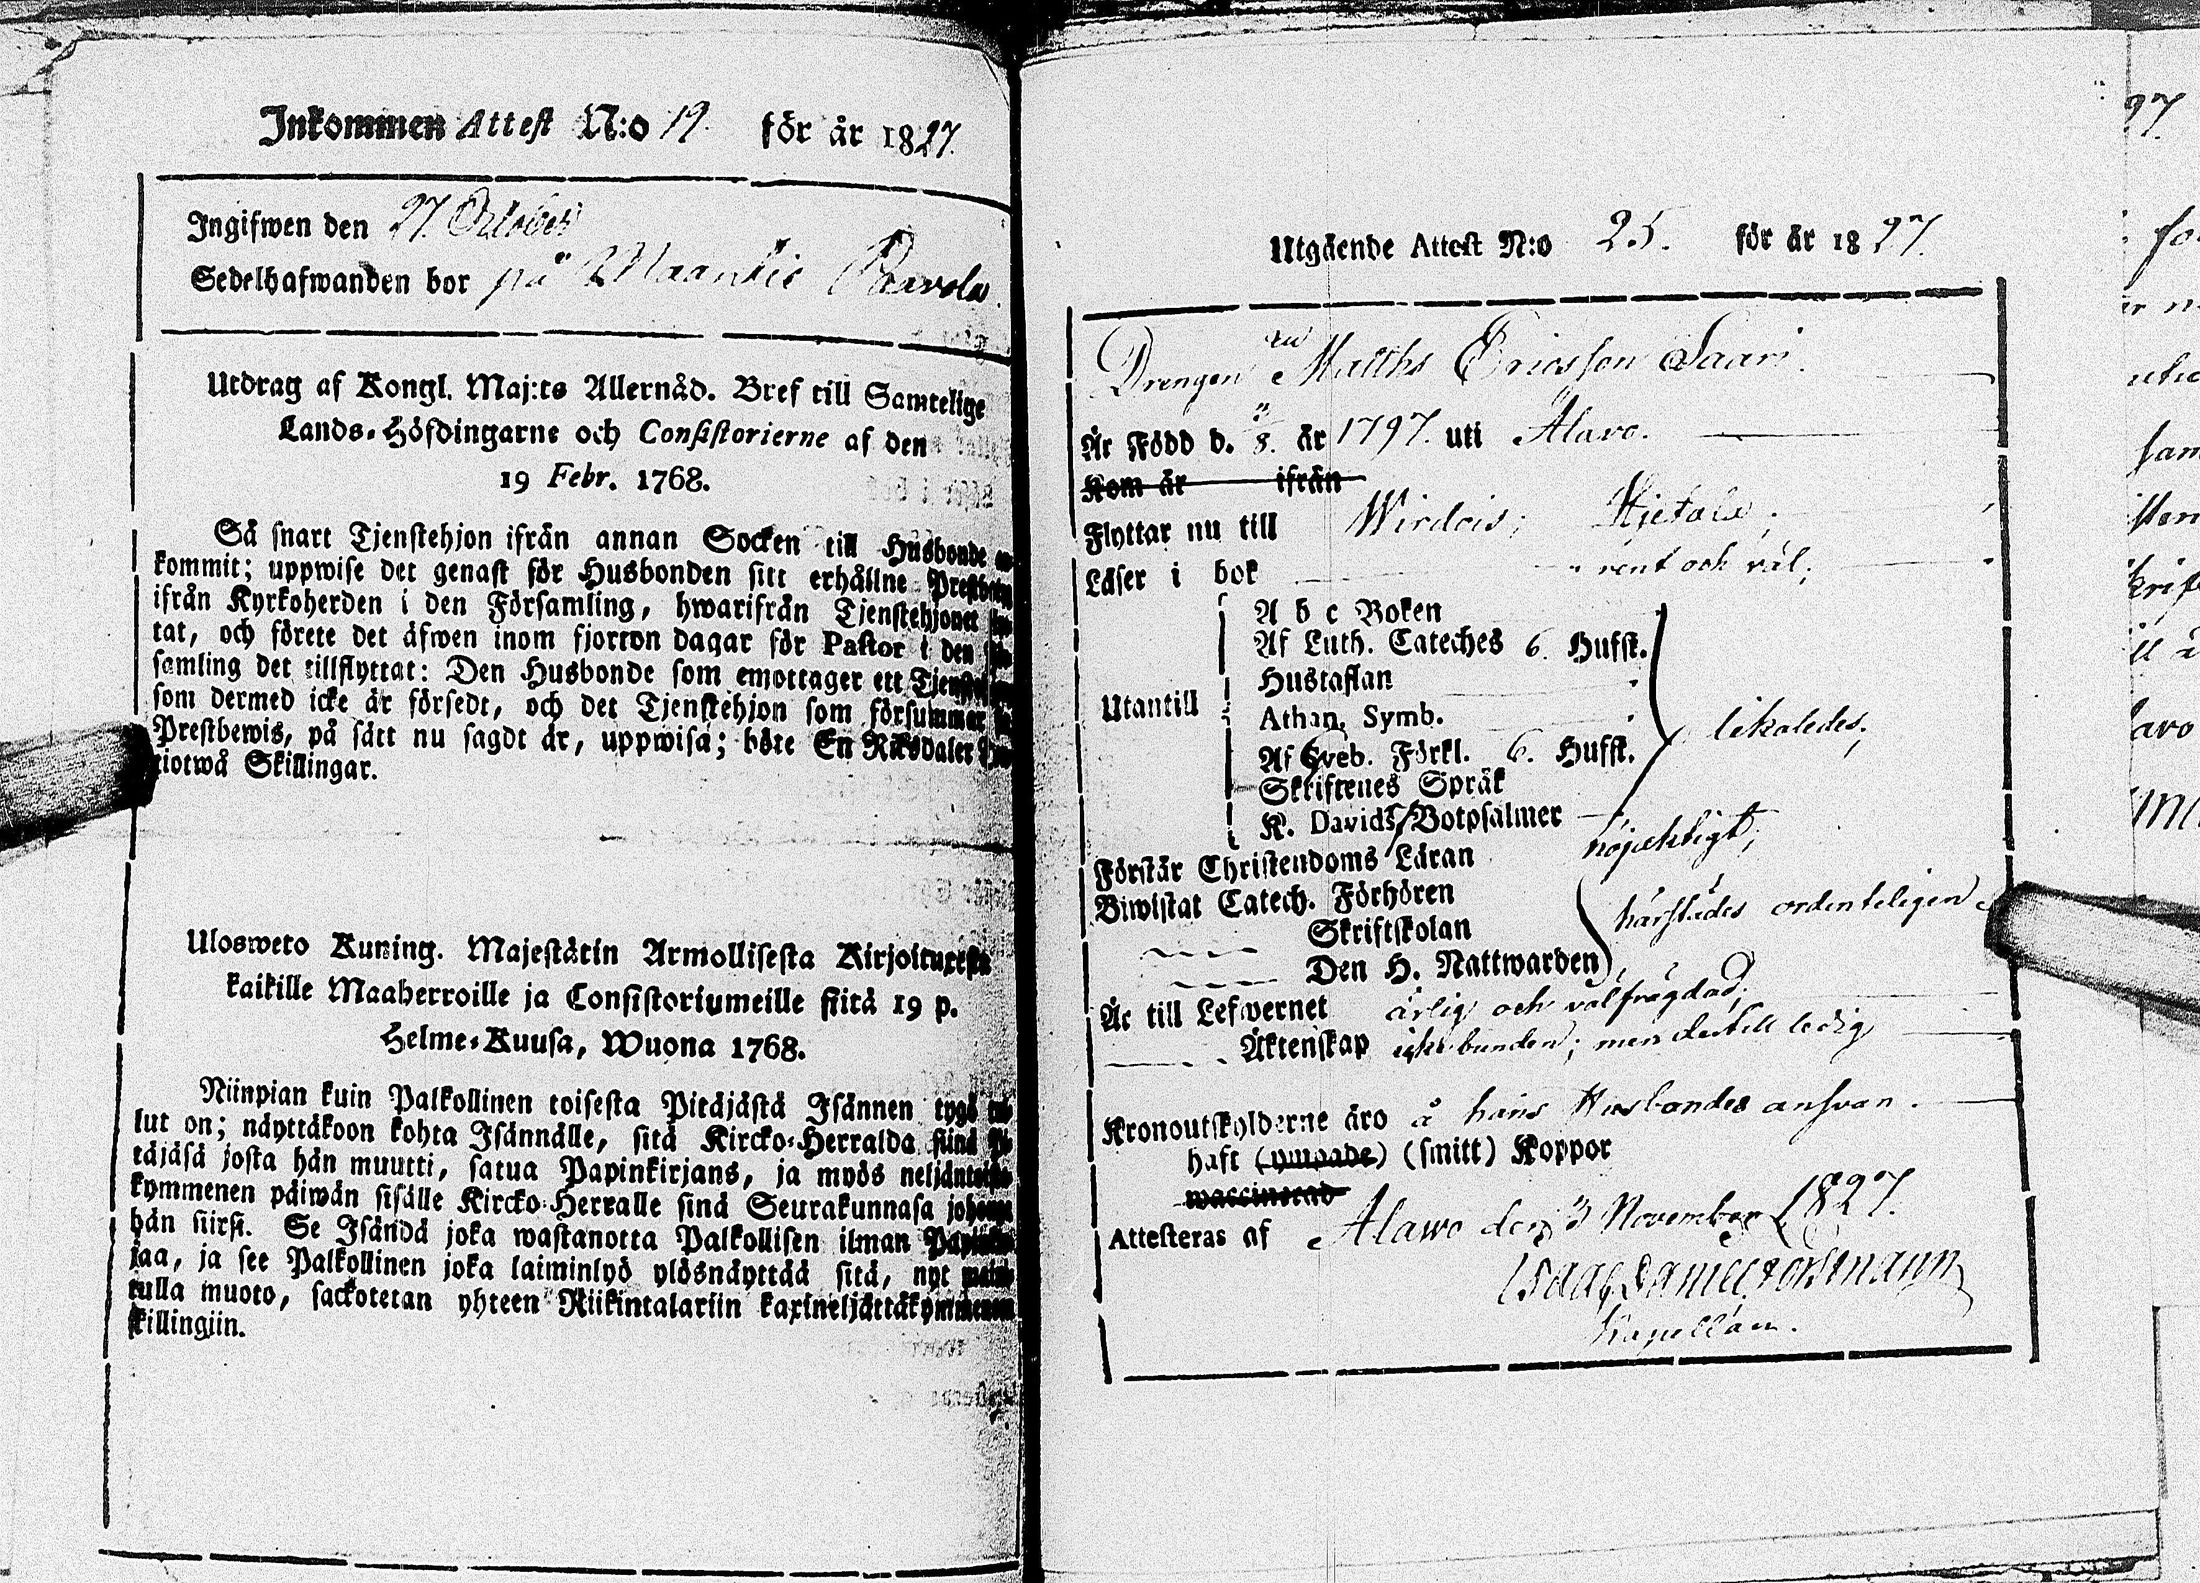 Inkommen Attest N:o 19. för år 1827.
Ingifwen den 27. October
Sedelhafwanden bor på Paavola.
Utdrag af Kongl. Maj:ts Allernåd. Bref till Samtelige
Lands-Höfdingarne och Consistorierne af den
19 Febr. 1768.
Så snart Tjenstehjon ifrån annan Socken till Husbonde
kommit; uppwise det genast för Husbonden sitt erhållne
ifrån Kyrkoherden i den Församling, hwarifrån Tjenstehjonet
tat, och förete det äfwen inom fjorton dagar för Pastor i den
samling det tillflyttat: Den Husbonde som emottager ett
som dermed icke är försedt, och det Tjenstehjon som försummar
Prestbewis, på sätt nu sagdt är, uppwisa; böte En Riksdaler
tiotwå Skillingar.
Ulosweto Kuning. Majestätin Armollisesta Kirjoituxesta
kaikille Maaherroille ja Consistoriumeille siitä 19 p.
Helme-Kuusa, Wuona 1768.
Niinpian kuin Palkollinen toisesta Pitäjästä Isännen tygö
lut on; näyttäkoon kohta Isännälle, sitä Kircko-Herralda siinä
täjäsä josta hän muutti, satua Papinkirjans, ja myös
kymmenen päiwän sisälle Kircko-Herralle sinä Seurakunnasa
hän siirsi. Se Isändä joka wastanotta Palkollisen ilman
jaa, ja see Palkollinen joka laiminlyö ylösnäyttää sitä, nyt
tulla muoto, sackotetan yhteen Riikintalariin kaxineljättäkymmenen
skillingiin.
Utgående Attest N:o 25. för år 1827.
Drengen Matths Ericsson Saari.
År Född d. 8. år 1797. uti Alavo.
Kom år ifrån
Flyttar nu till Wirdois; Hjetala;
Läser i bok rent och väl;
A b c Boken
Af Luth. Cateches 6. Hufst.
Hustaflan
Utantill
Athan. Symb.
likaledes;
Af Sveb. Förkl. 6. Hufst.
Skriftenes Språk
K. Davids Botpsalmer
Förstår Christendoms Läran nöjaktigt;
Biwistat Catech. Förhören
härstädes ordenteligen
Skriftskolan
Den H. Nattwarden
År till Lefwernet ärlig och välfrägdad;
Äktenskap icke bunden; men dertill ledig
Kronoutskylderne äro å hans Husbondes answar.
haft (ympade) (smitt) Koppor
waccinerad
Attesteras af Alawo den 3 November 1827.
Isaac Daniel Forsmann
Kapellan.